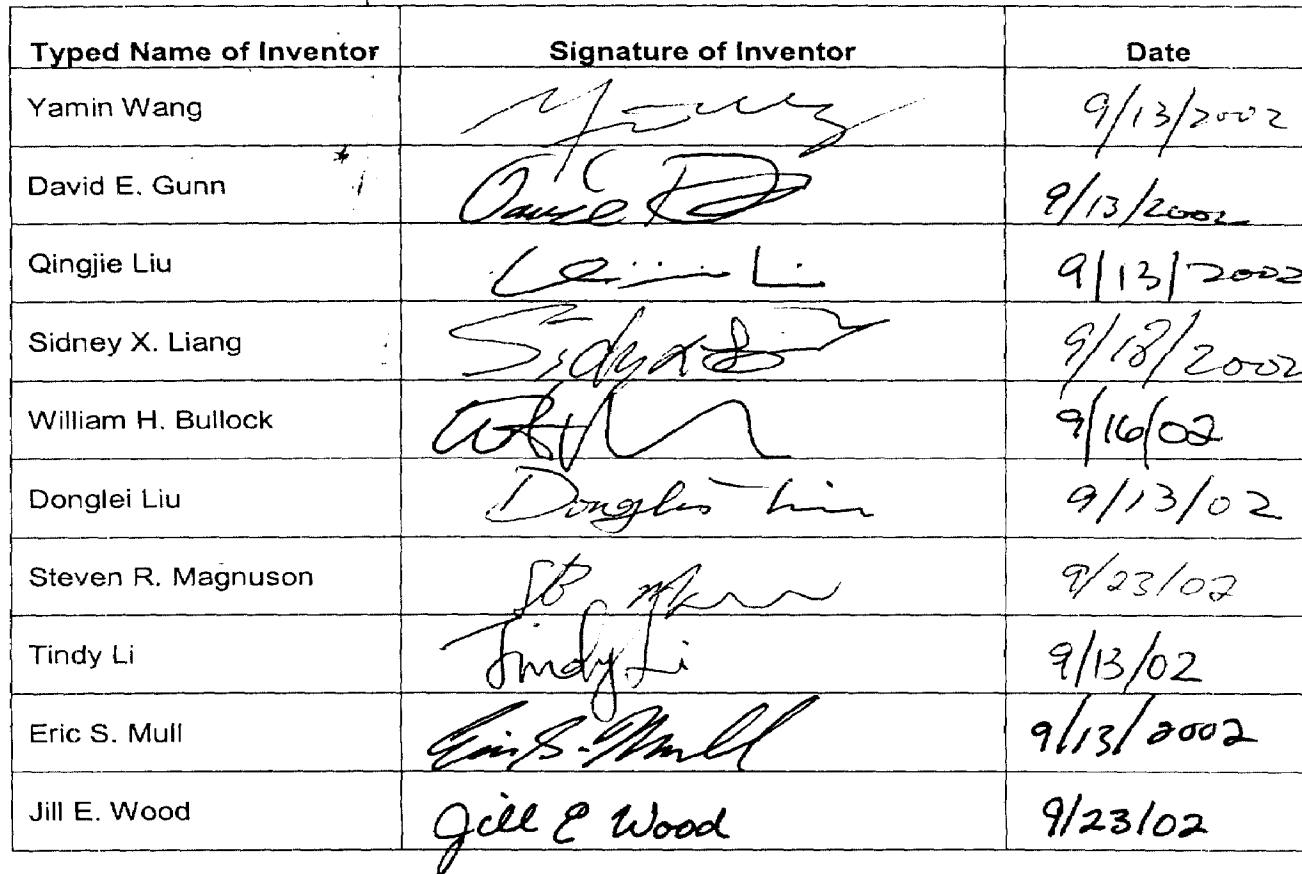 Typed Name of Inventor Signature of Inventor Date
Yamin Wang 9/13/2002
David E. Gunn 9/13/2002
Qingjie Liu 9/13/2002
Sidney X. Liang 9/18/2002
William H. Bullock 9/16/02
Donglei Liu Donglei Liu 9/13/02
Steven R. Magnuson 9/23/02
Tindy Li Tindy Li 9/13/02
Eric S. Mull Eric S. Mull 9/13/2002
Jill E. Wood Jill E Wood 9/23/02